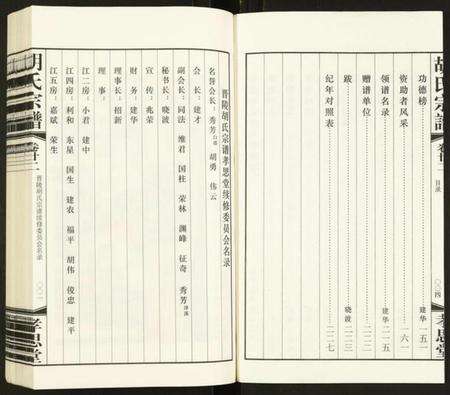 胡氏宗譜
卷廿二
目录
〇〇四
孝思堂
功德榜 建华 一五一
资助者风采 一六一
领谱名录 建华 二一五
赠谱单位 二二二
跋 晓波 二二三
纪年对照表 二二七
晋陵胡氏宗谱孝思堂续修委员会名录
名誉会长：秀芳 胡勇 伟云
会长：建才
副会长：同法 维君 国柱 荣林 渊峰 征奇 秀芳
秘书长：晓波
宣传：兆荣
财务：建华
理事长：招新
理事：
江二房：小君 建中
江四房：利和 东星 国生 建农 福平 胡伟 俊忠 建平
江五房：嘉斌 荣生
胡氏宗譜
卷廿二
晋陵胡氏宗谱续修委员会名录
孝思堂